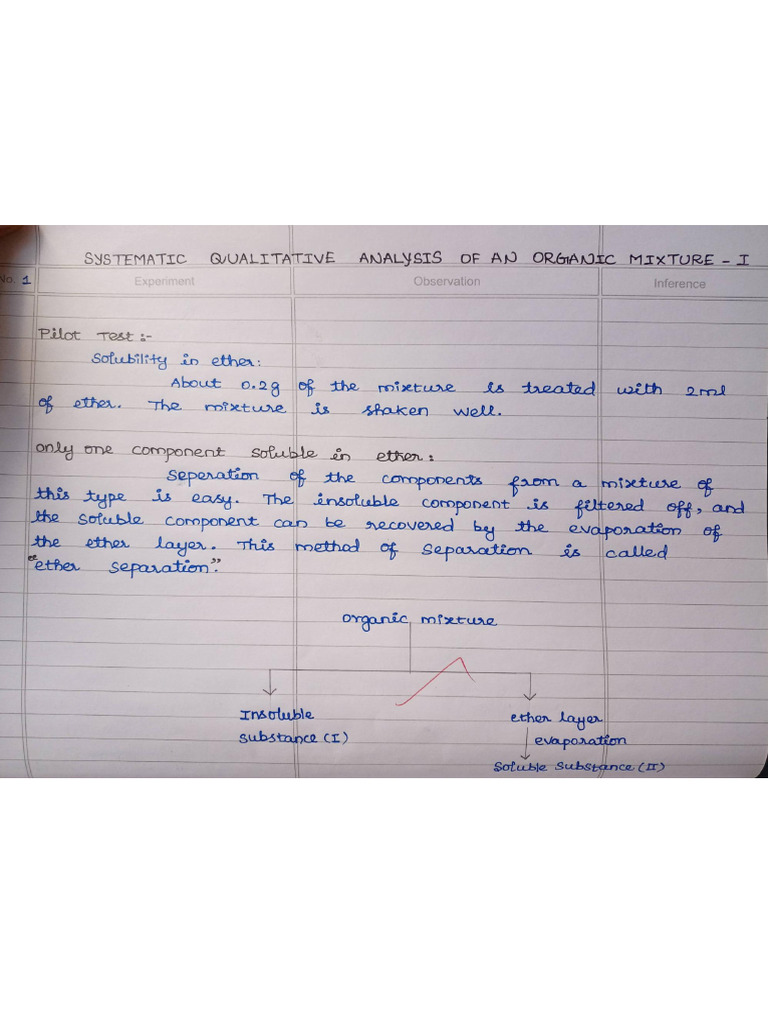 SYSTEMATIC QUALITATIVE ANALYSIS OF AN ORGANIC MIXTURE - I
No. 1 Experiment Observation Inference
Pilot Test:-
Solubility in ether:
About 0.2g of the mixture is treated with 2ml
of ether. The mixture is shaken well.
only one component soluble in ether:
Seperation of the components from a mixture of
this type is easy. The insoluble component is filtered off, and
the soluble component can be recovered by the evaporation of
the ether layer. This method of separation is called
"ether separation".
organic mixture
Insoluble ether layer
substance (I) evaporation
Soluble substance (II)